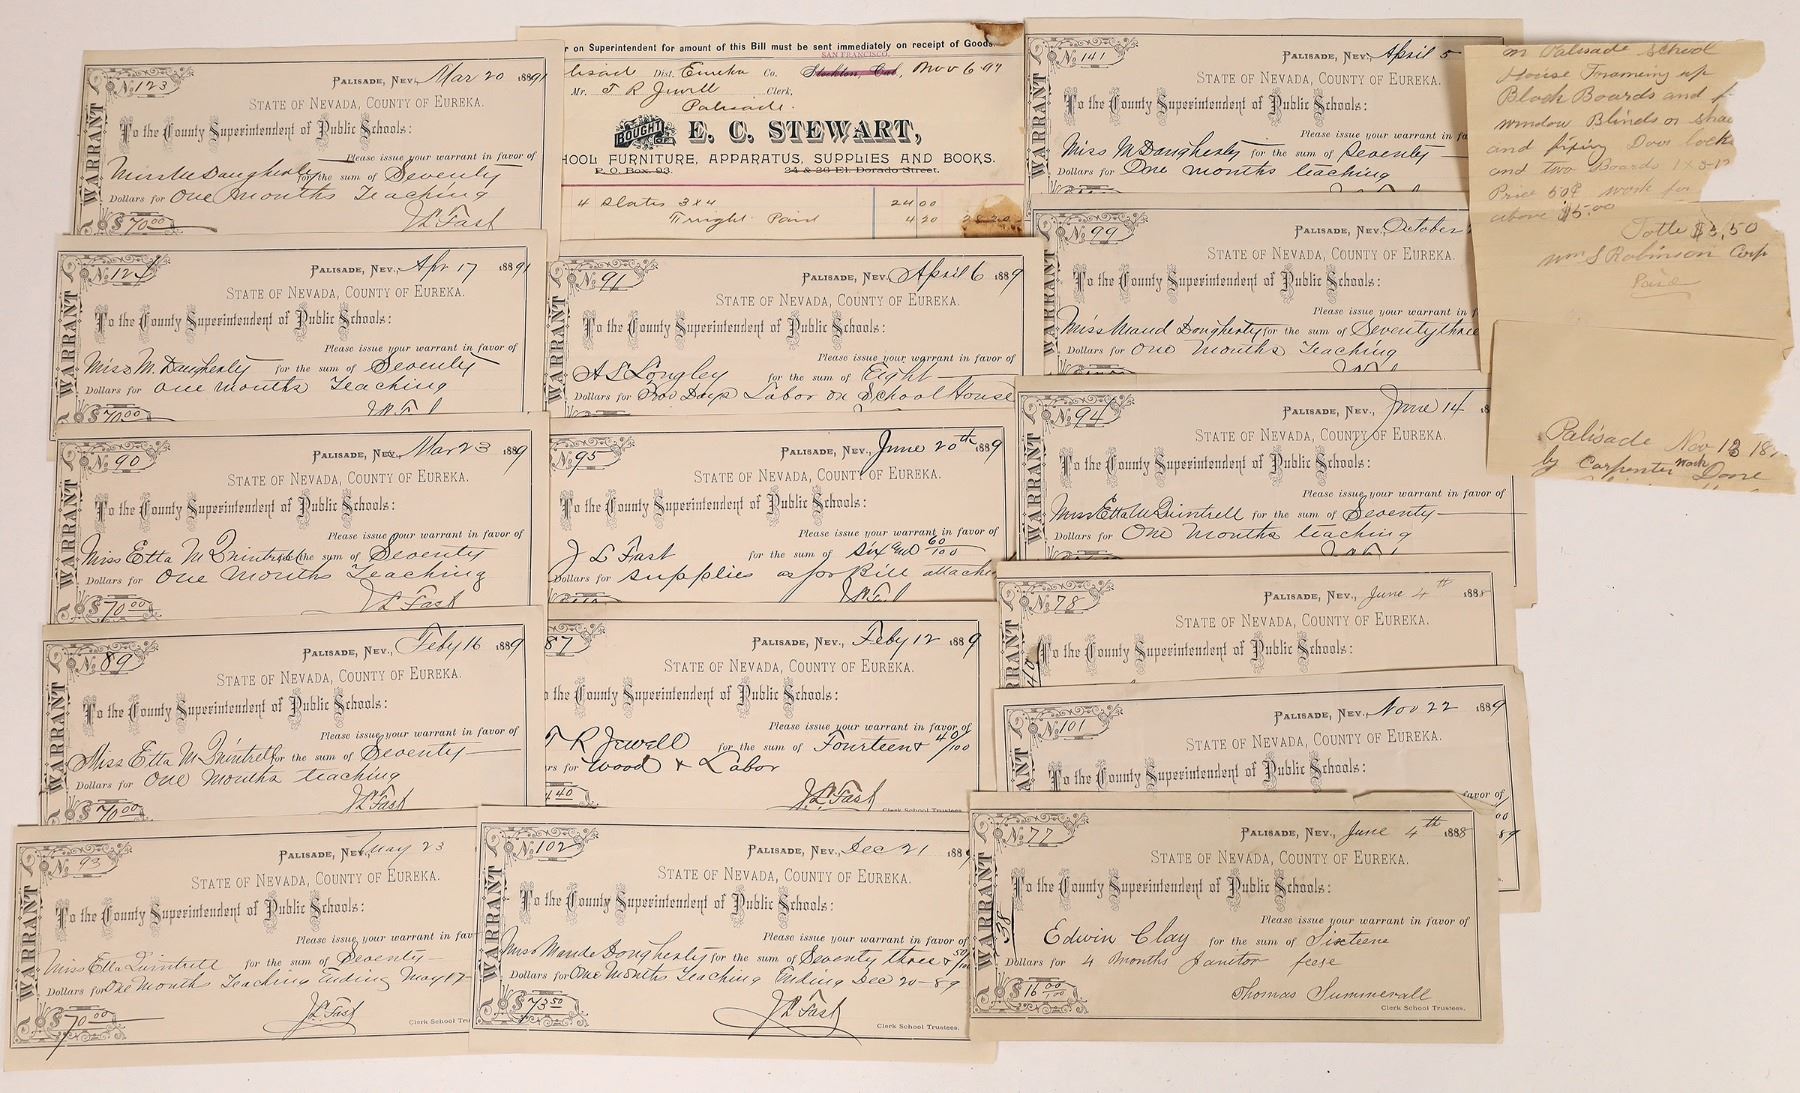 WARRANT
No 123
PALISADE, NEV., Mar 20 18891
STATE OF NEVADA, COUNTY OF EUREKA.
To the County Superintendent of Public Schools:
Please issue your warrant in favor of
Miss M Daugherty for the sum of Seventy
Dollars for One Months Teaching
$70.00 J L Fast
WARRANT
No 124
PALISADE, NEV., Apr 17 18891
STATE OF NEVADA, COUNTY OF EUREKA.
To the County Superintendent of Public Schools:
Please issue your warrant in favor of
Miss M. Daugherty for the sum of Seventy
Dollars for One months Teaching
$70.00
WARRANT
No 90
PALISADE, NEV., Mar 23 1889
STATE OF NEVADA, COUNTY OF EUREKA.
To the County Superintendent of Public Schools:
Please issue your warrant in favor of
Miss Etta M Quintrell the sum of Seventy
Dollars for One Months Teaching
$70.00 J L Fast
WARRANT
No 89
PALISADE, NEV., Feby 16 1889
STATE OF NEVADA, COUNTY OF EUREKA.
To the County Superintendent of Public Schools:
Please issue your warrant in favor of
Miss Etta M Quintrell for the sum of Seventy
Dollars for One Months teaching
$70.00 J L Fast
WARRANT
No 93
PALISADE, NEV., May 23
STATE OF NEVADA, COUNTY OF EUREKA.
To the County Superintendent of Public Schools:
Please issue your warrant in fav
Miss Etta Quintrell for the sum of Seventy
Dollars for One Months Teaching Ending May 17
$70.00 J L Fast
Clerk School Tru
r on Superintendent for amount of this Bill must be sent immediately on receipt of Goods.
SAN FRANCISCO
lisade Dist. Eureka Co. Stockton Cal, Nov 6 97
Mr. T R Jewell Clerk,
Palisade.
BOUGHT OF E. C. STEWART,
HOOL FURNITURE, APPARATUS, SUPPLIES AND BOOKS.
P. O. Box 93. 24 & 26 El Dorado Street.
4 Slates 3x4 24 00
Frieght Paid 4 20 28 20
No 91
PALISADE, NEV., April 6 1889
STATE OF NEVADA, COUNTY OF EUREKA.
To the County Superintendent of Public Schools:
WARRANT
Please issue your warrant in favor of
A S Longley for the sum of Eight
Dollars for Two Days Labor on School House
No 95
PALISADE, NEV., June 20th 1889
STATE OF NEVADA, COUNTY OF EUREKA.
To the County Superintendent of Public Schools:
Please issue your warrant in favor of
J L Fast for the sum of Six and 60/100
Dollars for Supplies as per Bill attache
J L Fast
87
PALISADE, NEV., Feby 12 1889
STATE OF NEVADA, COUNTY OF EUREKA.
o the County Superintendent of Public Schools:
Please issue your warrant in favor of
T R Jewell for the sum of Fourteen & 40/100
rs for Wood & Labor
4 40 J L Fast
Clerk School Trustees.
WARRANT
No 102
PALISADE, NEV., Dec 21 1889
STATE OF NEVADA, COUNTY OF EUREKA.
To the County Superintendent of Public Schools:
Please issue your warrant in favor of
Miss Maude Dougherty for the sum of Seventy three & 50/100
Dollars for One Months Teaching Ending Dec 20-89
$73.50 J L Fast
Clerk School Trustees.
WARRANT
No 141
PALISADE, NEV., April 5
STATE OF NEVADA, COUNTY OF EUREKA.
To the County Superintendent of Public Schools:
Please issue your warrant in fa
Miss M Daugherty for the sum of Seventy
Dollars for One months teaching
WARRANT
No 99
PALISADE, NEV., October
STATE OF NEVADA, COUNTY OF EUREKA.
To the County Superintendent of Public Schools:
Please issue your warrant in f
Miss Maud Dougherty for the sum of Seventy three
Dollars for One Months Teaching
WARRANT
No 94
PALISADE, NEV., June 14 18
STATE OF NEVADA, COUNTY OF EUREKA.
To the County Superintendent of Public Schools:
Please issue your warrant in favor of
Miss Etta M Quintrell for the sum of Seventy
Dollars for One Months teaching
RRANT
No 78
PALISADE, NEV., June 4th 1888
STATE OF NEVADA, COUNTY OF EUREKA.
To the County Superintendent of Public Schools:
ANT
No 101
PALISADE, NEV., Nov 22 1889
STATE OF NEVADA, COUNTY OF EUREKA.
To the County Superintendent of Public Schools:
favor of
WARRANT
38
No 77
PALISADE, NEV., June 4th 1888
STATE OF NEVADA, COUNTY OF EUREKA.
To the County Superintendent of Public Schools:
Please issue your warrant in favor of
Edwin Clay for the sum of Sixteene
Dollars for 4 Months Janitor feese
$16 00/100 Thomas Summerall
Clerk School Trustees.
on Palisade School
House Frameing up
Black Boards and f
window Blinds or Shae
and fixing Door locks
and two Boards 1x5-12
Price 50¢ work for
above $5.00
Totle $3,50
Wm S Robinson Carp
Paid
Palisade Nov 13 18
by Carpenter Work Done